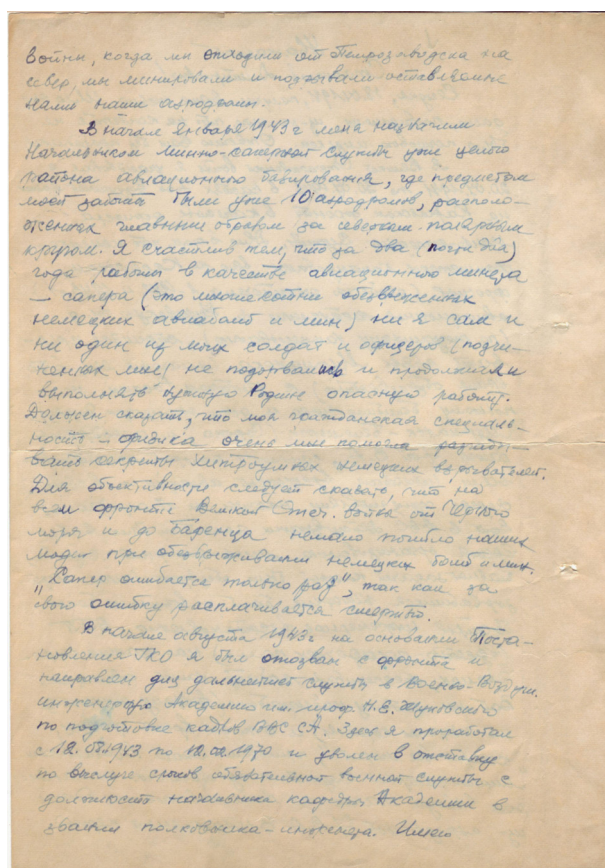 войны, когда мы отходили от Петрозаводска на
север, мы минировали и подрывали оставляемые
нами наши аэродромы.
В начале января 1943 г меня назначили
Начальником минно-саперной службы уже целого
района авиационного базирования, где предметом
моей заботы были уже 10 аэродромов, располо-
женных главным образом за северным полярным
кругом. Я счастлив тем, что за два (почти два)
года работы в качестве авиационного минера
— сапера (это многие сотни обезвреженных
немецких авиабомб и мин) ни я сам и
ни один из моих солдат и офицеров (подчи-
ненных мне) не подорвались и продолжали
выполнять нужную Родине опасную работу.
Должен сказать, что моя гражданская специаль-
ность – физика очень мне помогла разгады-
вать секреты хитроумных немецких взрывателей.
Для объективности следует сказать, что на
всем фронте Великой Отеч. войны от Черного
моря и до Баренца немало погибло наших
людей при обезвреживании немецких бомб и мин.
„Сапер ошибается только раз", так как за
свою ошибку расплачивается смертью.
В начале августа 1943 г на основании Поста-
новления ГКО я был отозван с фронта и
направлен для дальнейшей службы в Военно-Воздушн.
инженерную Академию им. проф. Н.Е. Жуковского
по подготовке кадров ВВС СА. Здесь я проработал
с 1943 по 1970 и уволен в отставку
по выслуге сроков обязательной военной службы с
должности начальника кафедры Академии в
звании полковника-инженера. Имею